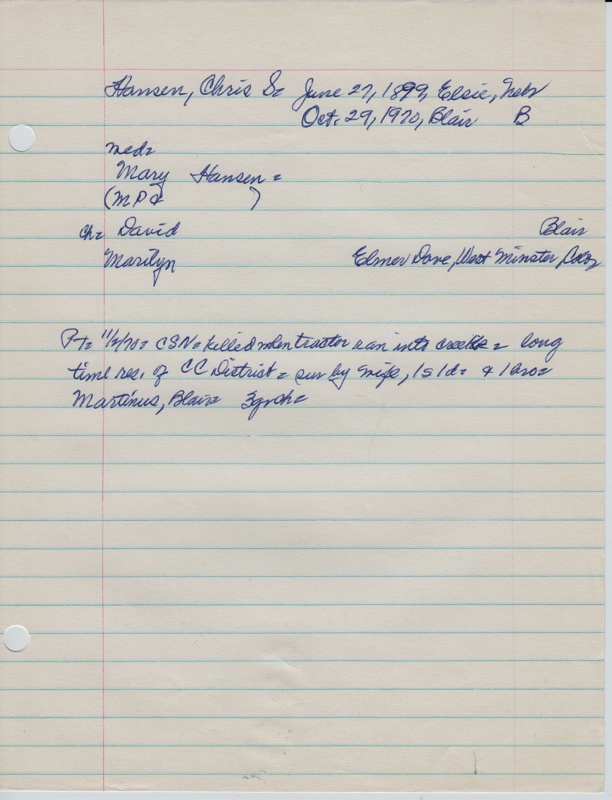 Hansen, Chris S= June 27, 1899, Elsie, Nebr
Oct. 29, 1970, Blair B
med=
Mary Hansen =
(MP& )
ch= David Blair
Marilyn Elmer Dove, West Minster, Colo
PT= 11/2/70= CSN= killed when tractor ran into creek = long
time res. of CC District = sur by wife, 1s 1d= & 1 bro=
Martinus, Blair= 3grch=